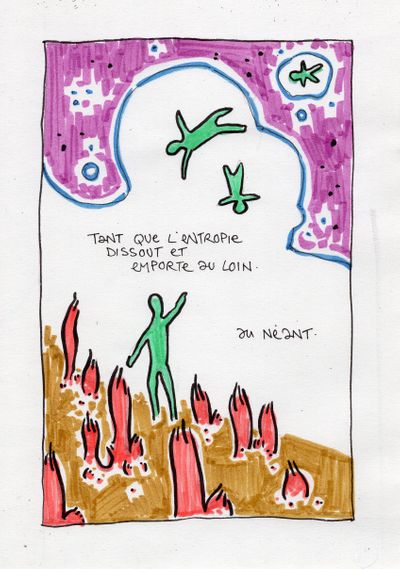 TANT QUE L'ENTROPIE
DISSOUT ET
EMPORTE AU LOIN.
AU NÉANT.